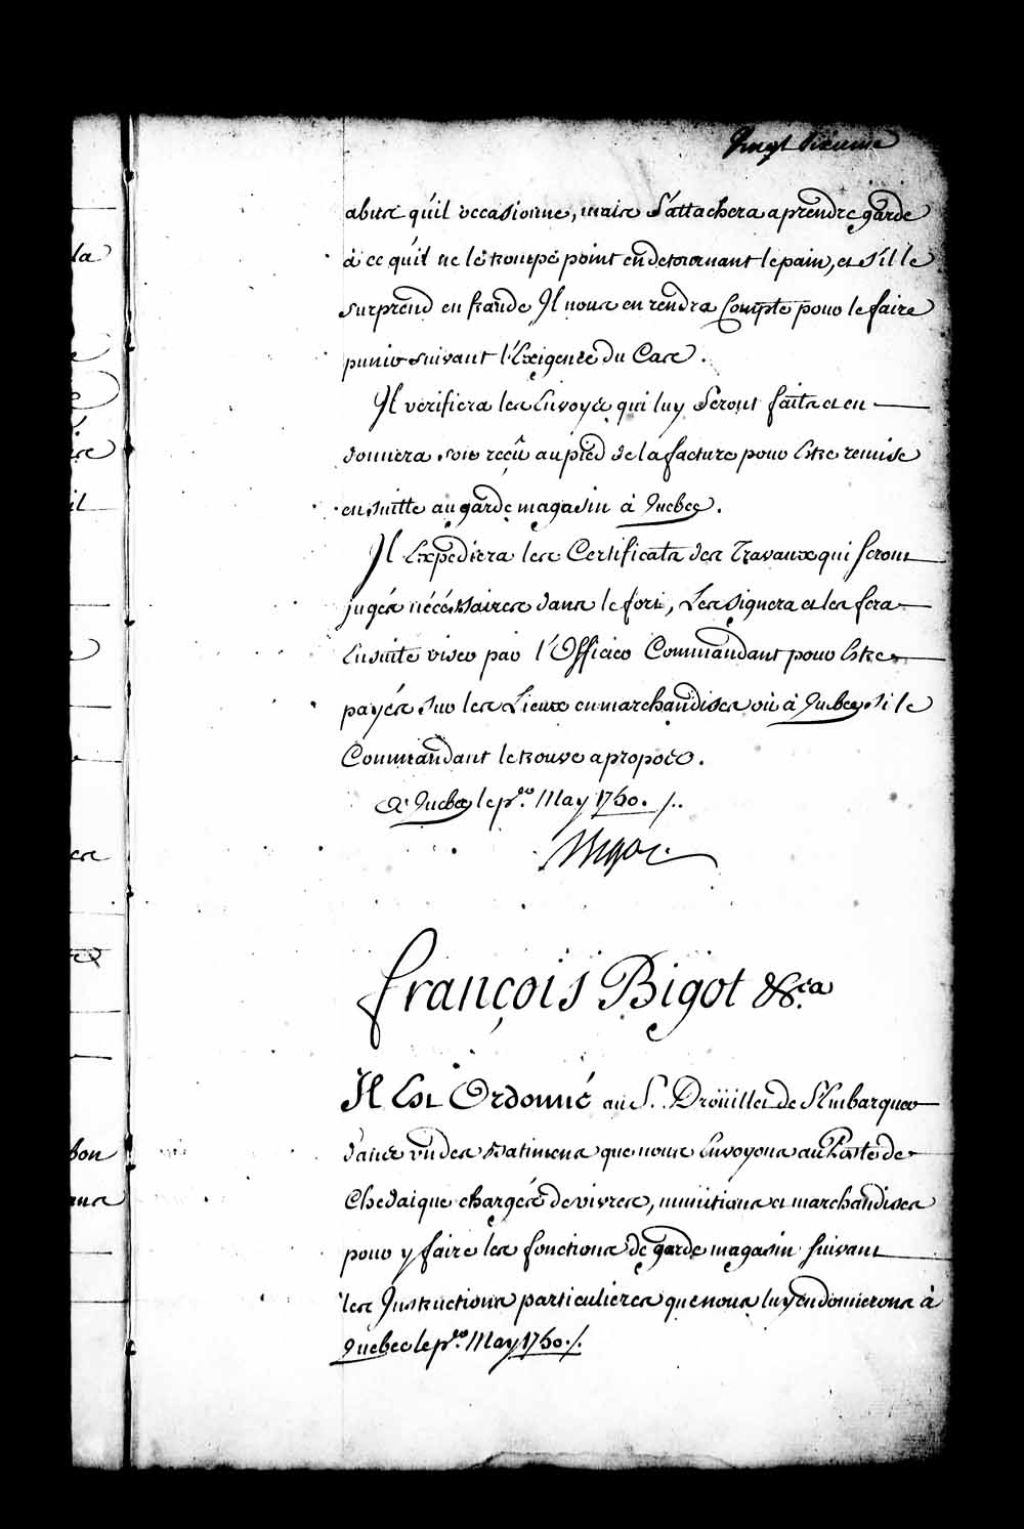 Vingt sixieme
abus qu'il occasionne, mais S'attachera a prendre garde
à ce qu'il ne le trompe point en detournant le pain, et s'il le
surprend en fraude Il nous en rendra Compte pour le faire
punir suivant l'Exigence du Cas.
Il verifiera les Envoys qui luy Seront faits et en
donnera son reçû au pied de la facture pour Estre remise
ensuitte au garde magasin à Quebec.
Il Expediera les Certificats des Travaux qui seront
jugés nécéssaires dans le fort, Les signera et les fera
Ensuitte viser par l'Officier Commandant pour Estre
payés sur les Lieux en marchandises où à Quebec si le
Commandant le trouve a propos.
A Quebec le pr. May 1750. /.
Bigot
françois Bigot &c.a
Il Est Ordonné au S. Droüillet de S'Embarquer
dans un des Batimens que nous Envoyons au Poste de
Chedaique chargés de vivres, munitions et marchandises
pour y faire les fonctions de garde magasin suivant
les Instructions particulieres que nous luy en donnerons à
Quebec le pr. May 1750. /.
la
ire
il
bon